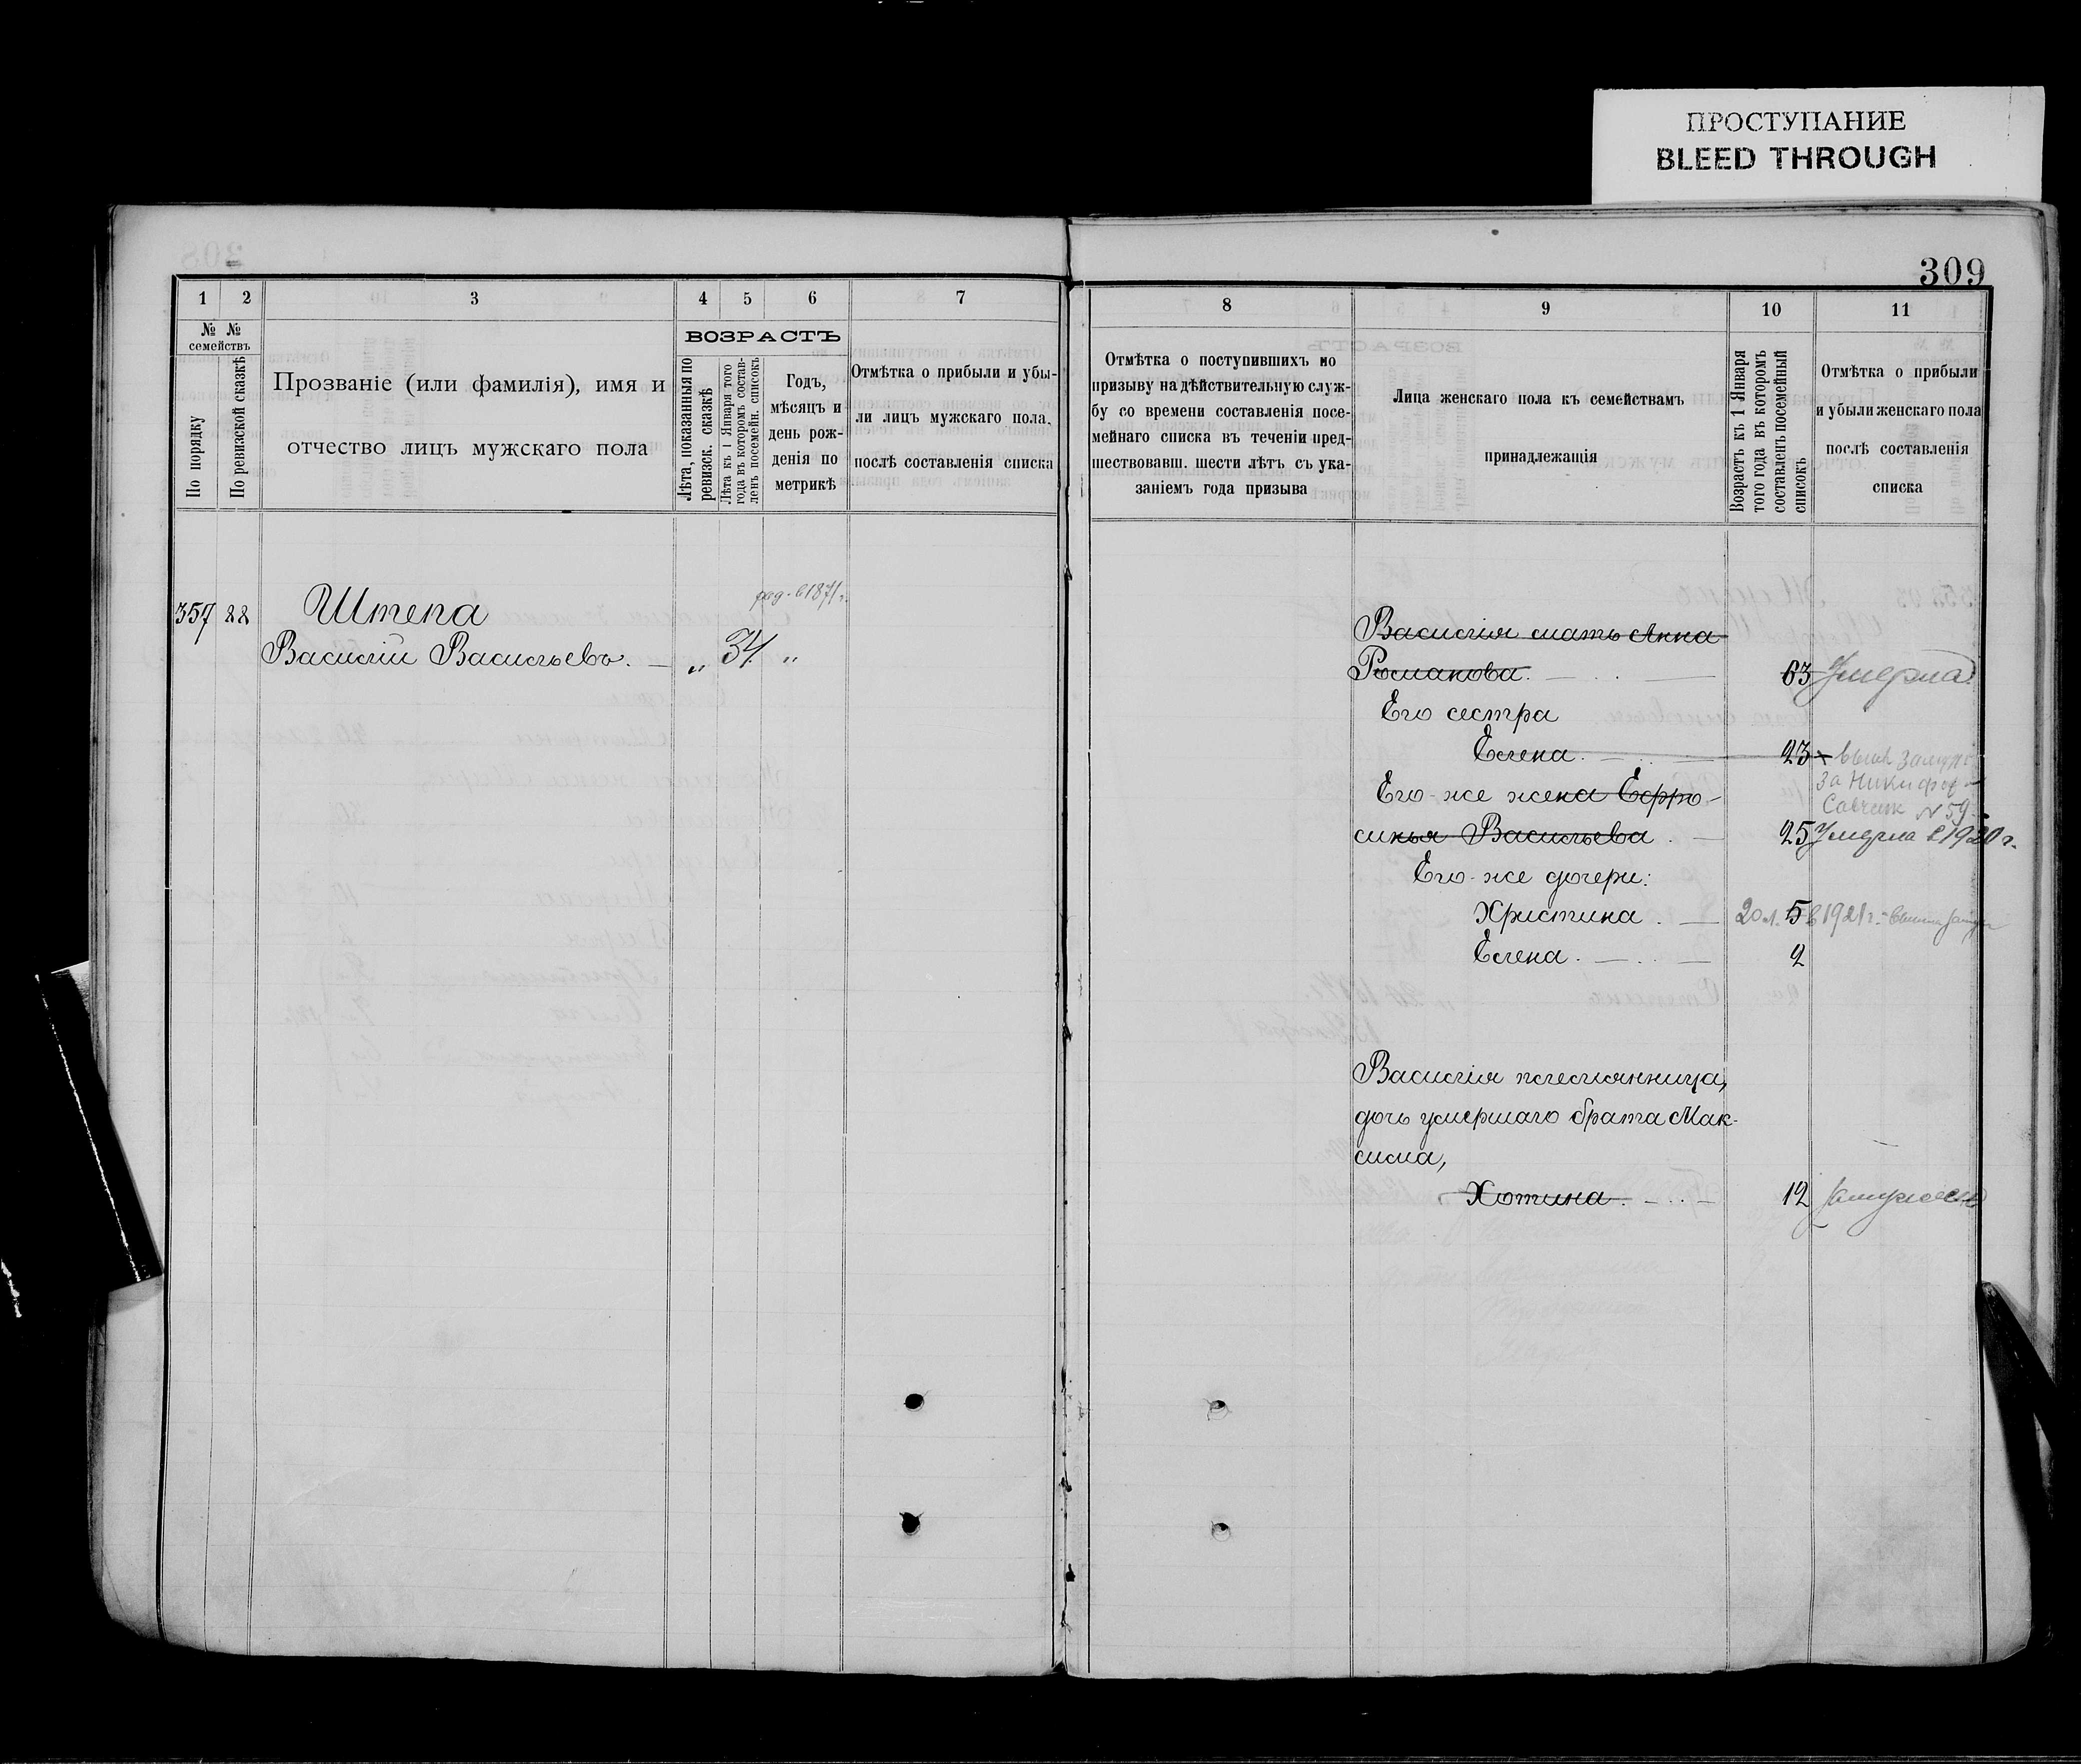 ПРОСТУПАНИЕ
BLEED THROUGH
309
1 2 3 4 5 6 7
№ № семействъ
По порядку
По ревизской сказкѣ
Прозваніе (или фамилія), имя и
отчество лицъ мужскаго пола
ВОЗРАСТЪ
Лѣта, показанныя по
ревизск. сказкѣ
Лѣта къ 1 Января того
года въ которомъ состав-
ленъ посемейн. списокъ
Годъ,
мѣсяцъ и
день рож-
денія по
метрикѣ
Отмѣтка о прибыли и убы-
ли лицъ мужскаго пола,
послѣ составленія списка
8 9 10 11
Отмѣтка о поступившихъ по
призыву на дѣйствительную служ-
бу со времени составленія посе-
мейнаго списка въ теченіи пред-
шествовавш. шести лѣтъ съ ука-
заніемъ года призыва
Лица женскаго пола къ семействамъ
принадлежащія
Возрастъ къ 1 Января
того года въ которомъ
составленъ посемейный
списокъ
Отмѣтка о прибыли
и убыли женскаго пола
послѣ составленія
списка
357 22 Штепа
род. в 1871 г.
Василій Васильевъ. — „ 34. „
Василія мать Анна
Романова. 63 Умерла
Его сестра
Елена. 23 вышл замуж
за Никифор
Савчик № 59.
Его-же жена Ефро-
синья Васильева. 25 Умерла в 1920 г.
Его-же дочери:
Христина. 20 л. 5 в 1921 г. - вышла замуж
Елена. 2
Василія племянница,
дочь умершаго брата Мак-
сима,
Хотина. 12 замужем